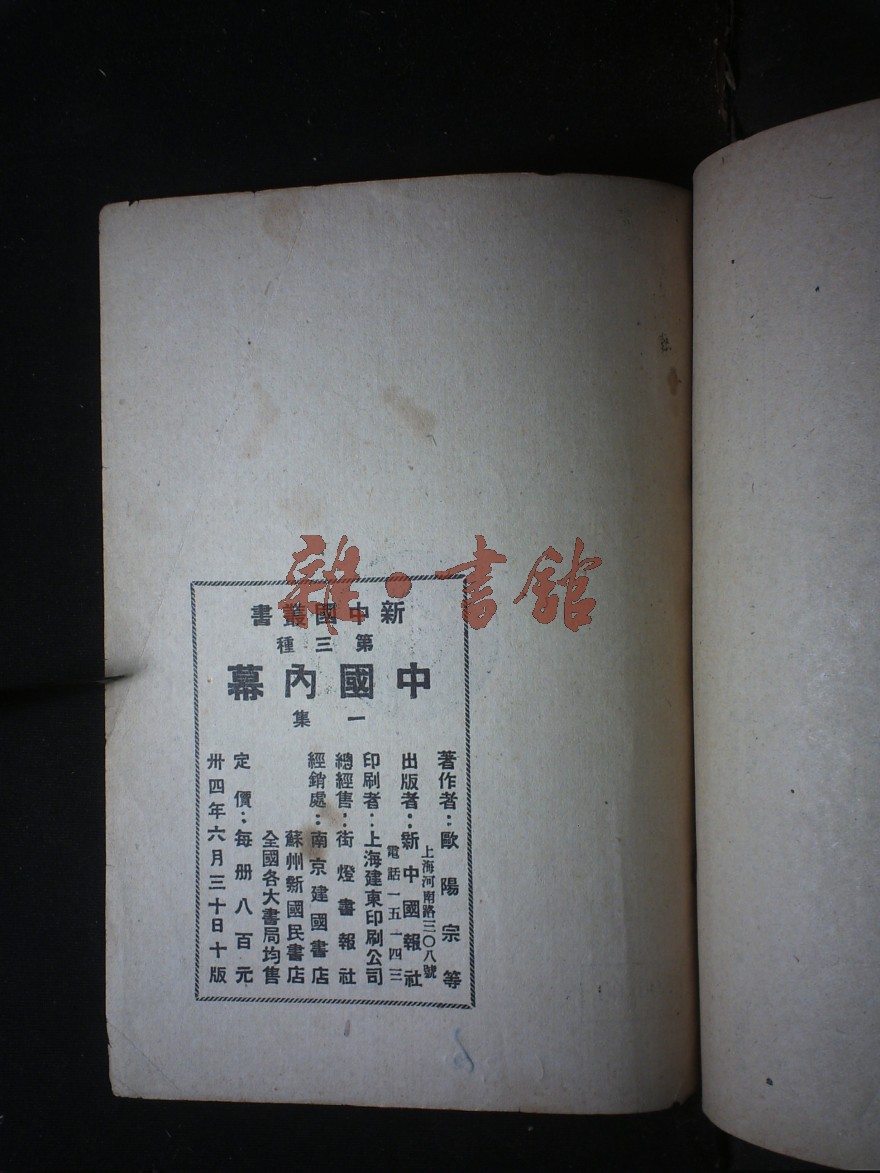 雜·書舘
新中國叢書
第三種
中國內幕
一集
著作者：歐陽宗等
上海河南路三〇八號
出版者：新中國報社
電話一五一四三
印刷者：上海建東印刷公司
總經售：街燈書報社
經銷處：南京建國書店
蘇州新國民書店
全國各大書局均售
定價：每册八百元
卅四年六月三十日十版